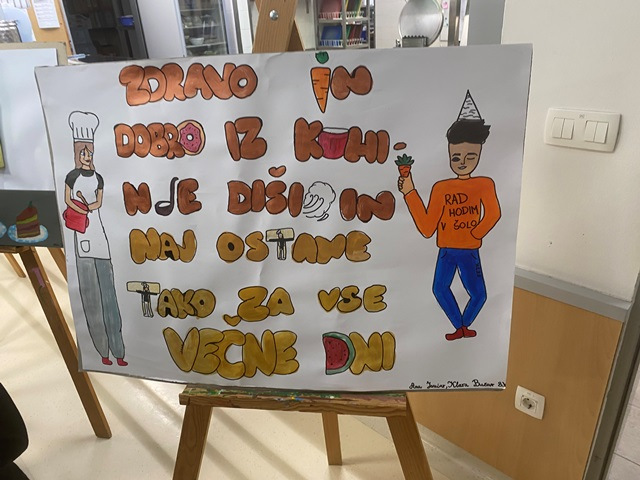 ZDRAVO IN
DOBRO IZ KUHI-
NJE DIŠI IN
NAJ OSTANE
TAKO ZA VSE
VEČNE DNI
RAD
HODIM
V ŠOLO
Ana Klara